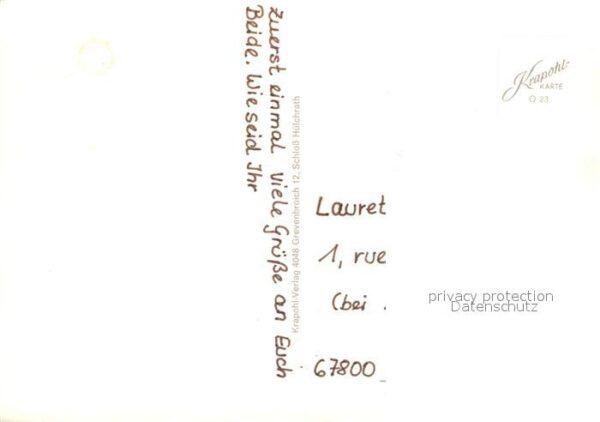 Zuerst einmal viele Grüße an Euch
Beide. Wie seid Ihr
Krapohl-Verlag 4048 Grevenbroich 12, Schloß Hülchrath
Krapohl-
KARTE
O 23
Lauret
1, rue
(bei .
67800
privacy protection
Datenschutz